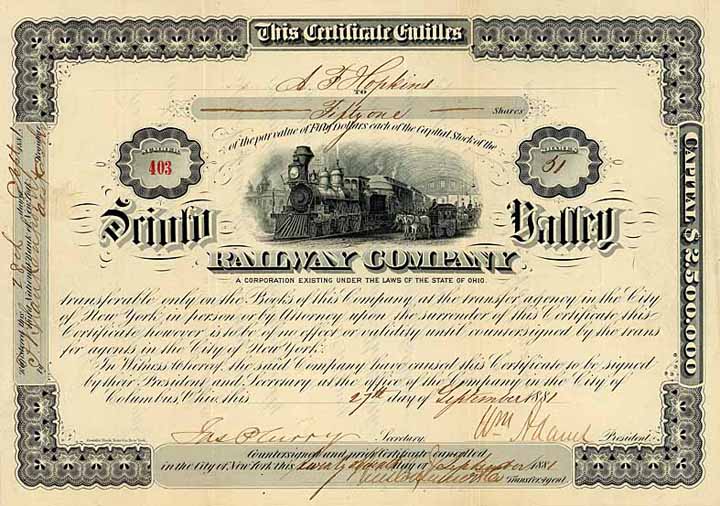 This Certificate Entitles
A F Hopkins
TO
Fifty one Shares
of the par value of Fifty Dollars each of the Capital Stock of the
NUMBER
403
SHARES
51
Scioto Valley
RAILWAY COMPANY
A CORPORATION EXISTING UNDER THE LAWS OF THE STATE OF OHIO.
transferable only on the Books of this Company at the transfer agency in the City
of New York in person or by Attorney upon the surrender of this Certificate this
Certificate however is to be of no effort or validity until countersigned by the trans
fer agents in the City of New York.
In Witness whereof, the said Company have caused this Certificate to be signed
by their President and Secretary at the office of the Company in the City of
Columbus, Ohio, this 27th day of September 1881
Secretary. Wm Adams President.
Countersigned and prior Certificate cancelled
in the City of New York this twenty day of September 1881
Transfer Agent.
CAPITAL $2,500,000